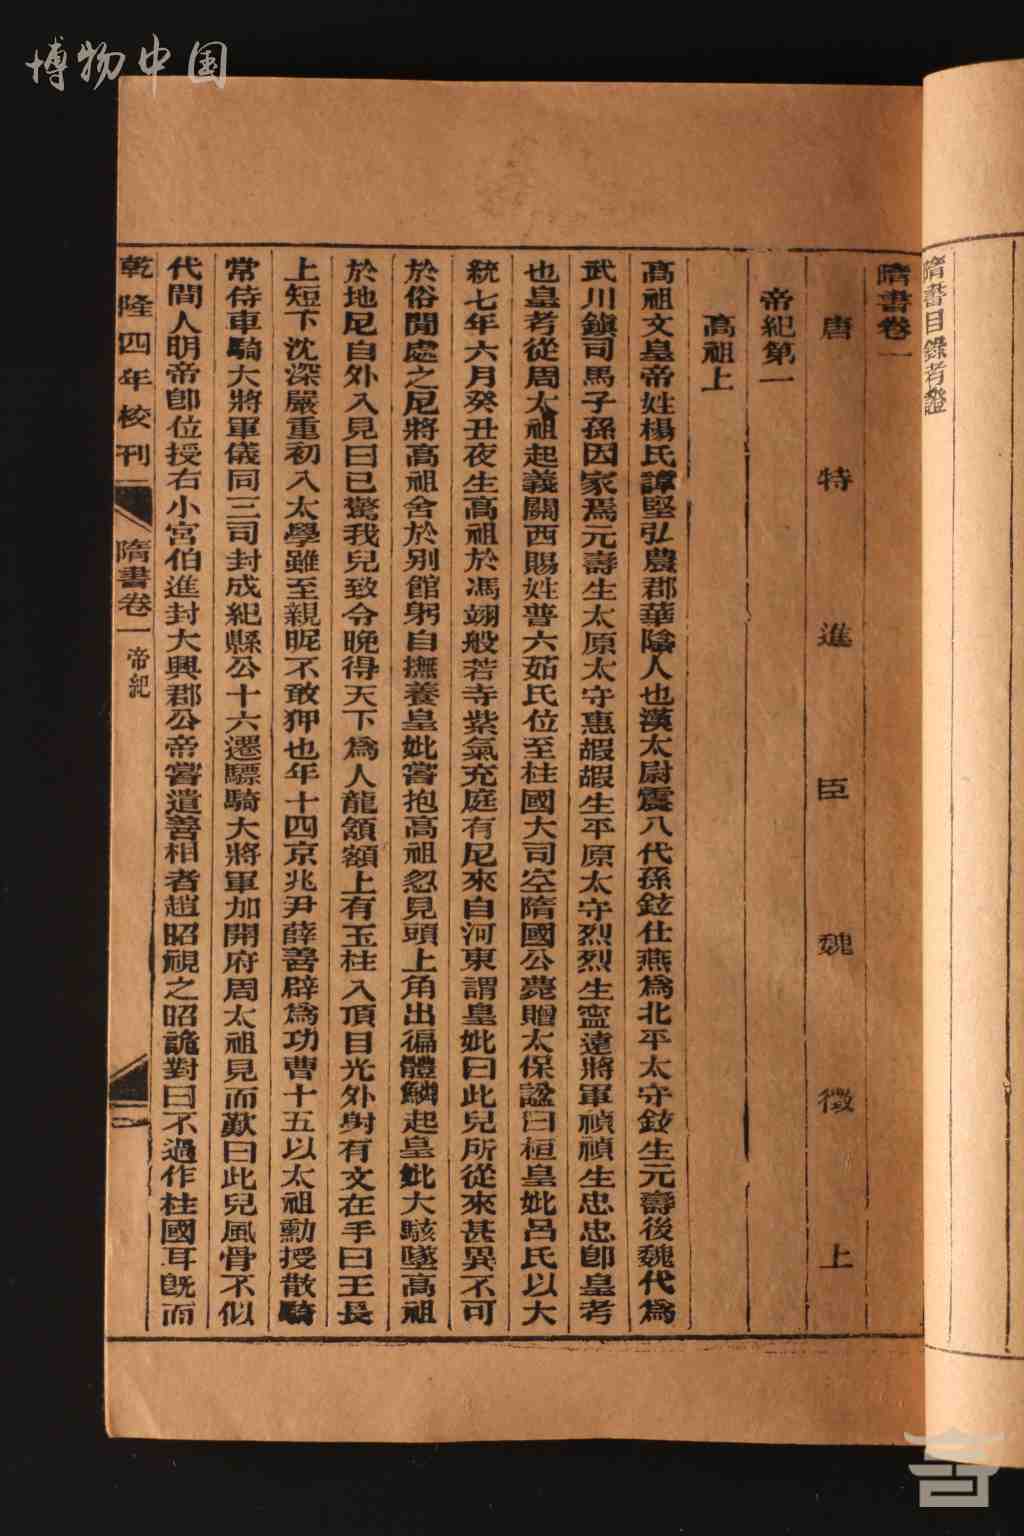 博物中国
隋書目錄考證
隋書卷一
唐特進臣魏徵上
帝紀第一
高祖上
高祖文皇帝姓楊氏諱堅弘農郡華陰人也漢太尉震八代孫鉉仕燕為北平太守鉉生元壽後魏代為
武川鎮司馬子孫因家焉元壽生太原太守惠嘏嘏生平原太守烈烈生寧遠將軍禎禎生忠忠卽皇考
也皇考從周太祖起義關西賜姓普六茹氏位至柱國大司空隋國公薨贈太保諡曰桓皇妣呂氏以大
統七年六月癸丑夜生高祖於馮翊般若寺紫氣充庭有尼來自河東謂皇妣曰此兒所從來甚異不可
於俗間處之尼將高祖舍於別館躬自撫養皇妣嘗抱高祖忽見頭上角出徧體鱗起皇妣大駭墜高祖
於地尼自外入見曰已驚我兒致令晚得天下為人龍頷額上有玉柱入頂目光外射有文在手曰王長
上短下沈深嚴重初入太學雖至親昵不敢狎也年十四京兆尹薛善辟為功曹十五以太祖勳授散騎
常侍車騎大將軍儀同三司封成紀縣公十六遷驃騎大將軍加開府周太祖見而歎曰此兒風骨不似
代間人明帝卽位授右小宮伯進封大興郡公帝嘗遣善相者趙昭視之昭詭對曰不過作柱國耳旣而
乾隆四年校刊
隋書卷一帝紀